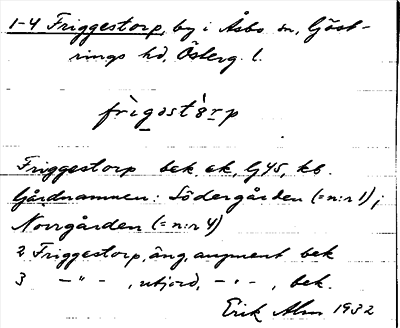 1-4 Friggestorp, by i Åsbo sn, Göst-
rings hd, Österg. l.
frìgast`8rp
Friggestorp bek ek, GJ45, kb.
Gårdnamnen: Södergården (=n:r 1);
Norrgården (=n:r 4)
2 Friggestorp, äng, augment bek
3 -"- , utjord, -"- , bek.
Erik Alm 1932